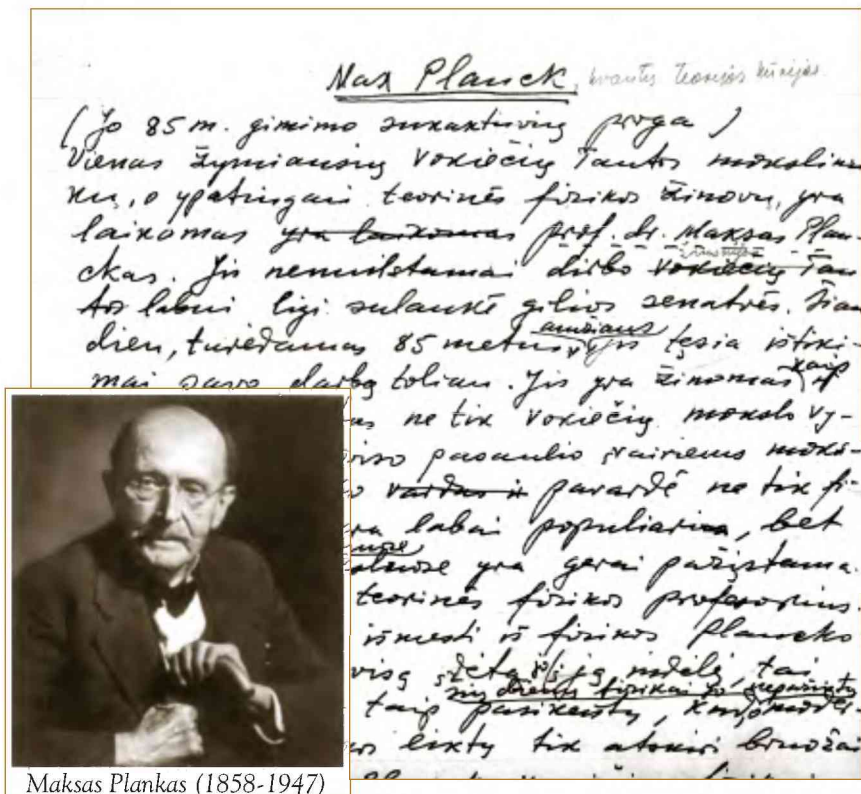 Max Planck, kvantų teorijos kūrėjas.
(Jo 85 m. gimimo sukaktuvių proga)
Vienas žymiausių vokiečių tautos mokslinin
kų, o ypatingai teorinės fizikos žinovų, yra
laikomas yra laikomas prof. dr. Maksas Plan-
ckas. Jis nenuilstamai dirbo vokiečių tau
tos labui ligi sulaukė gilios senatvės. Šian
dien, turėdamas 85 metus amžiaus, jis tęsia ištiki-
mai savo darbą toliau. Jis yra žinomas kaip
ne tik vokiečių mokslo vy-
viso pasaulio įvairiems moks-
vardas ir pavardė ne tik fi-
yra labai populiari, bet
yra gerai pažįstama.
teorinės fizikos profesorius.
išmesti iš fizikos Plancko
visą įdėtą į ją indėlį, tai
šių dienų fizikai jo
taip pasikeistų, kad
liktų tik atskiri bruožai
Maksas Plankas (1858-1947)